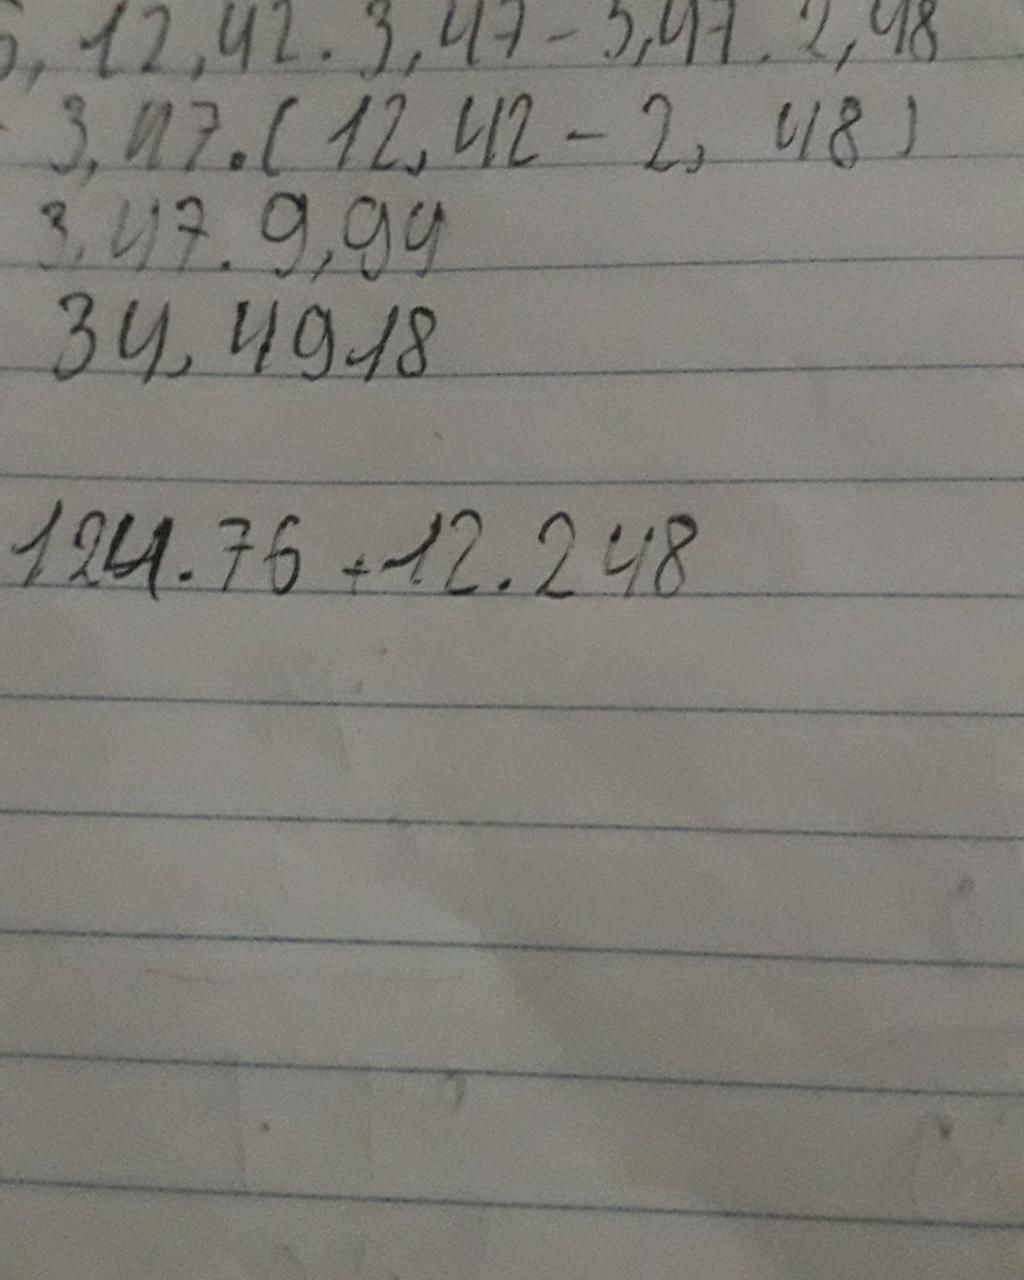 , 12,42. 3,47 - 3,47. 2,48
3,47.( 12,42 - 2, 48)
3,47. 9,94
34,4918
124.76 + 12.248